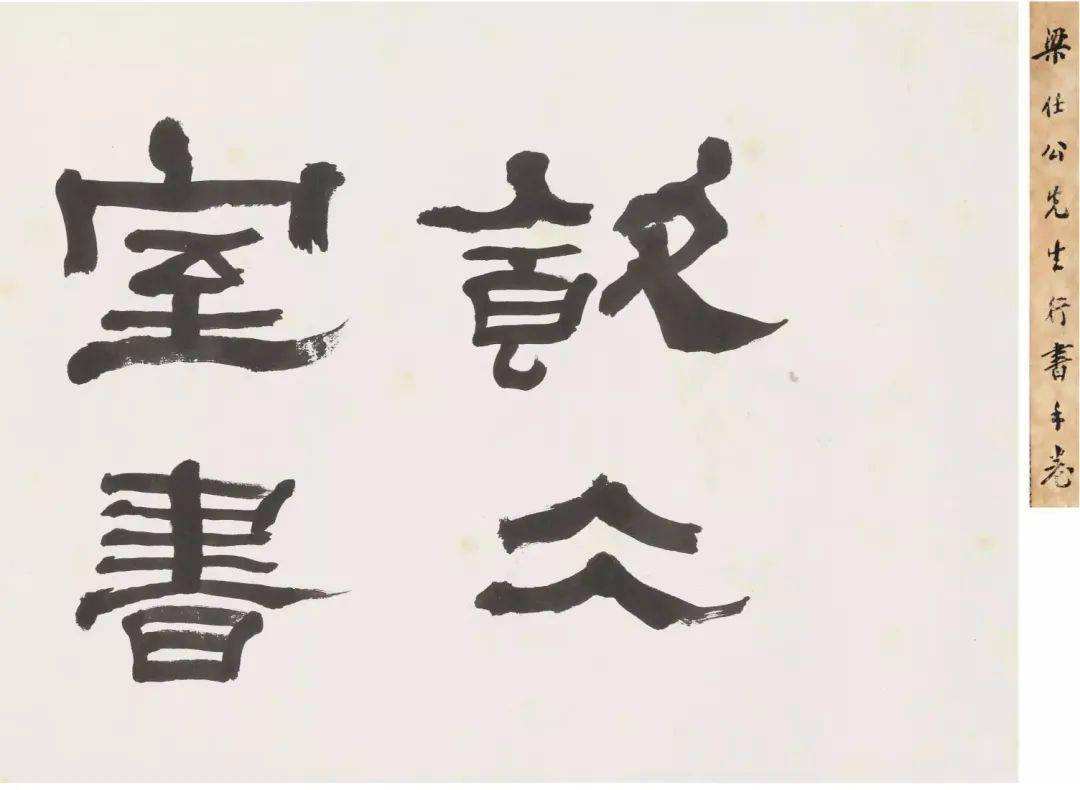 梁任公先生行書手卷
飲仌
室書